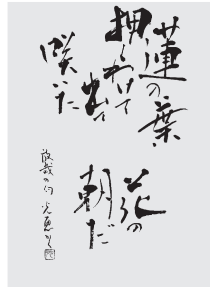 蓮の葉
押しわけて
出て
咲いた
花の
朝だ
放哉の句